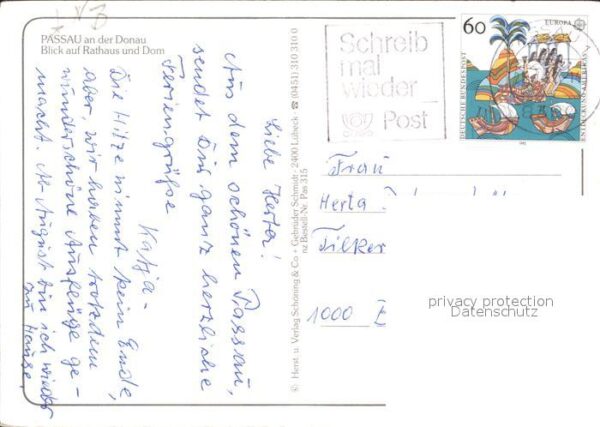 PASSAU an der Donau
Blick auf Rathaus und Dom
Liebe Herta!
Aus dem schönen Passau,
sendet Dir ganz herzliche
Feriengrüße
Katja -
Die Hitze nimmt kein Ende,
aber wir haben trotzdem
wunderschöne Ausflüge ge-
macht. Ab August bin ich wieder
zu Hause.
© Herst. u. Verlag Schöning & Co + Gebrüder Schmidt · 2400 Lübeck · ☎ (0451) 310 310 0
nz Bestell-Nr. Pas 315
Schreib
mal
wieder
Post
60
EUROPA
DEUTSCHE BUNDESPOST
Frau
Herta
Filker
1000
privacy protection
Datenschutz